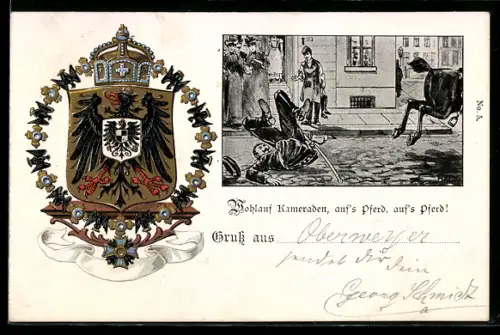 No. 5.
Wohlauf Kameraden, auf's Pferd, auf's Pferd!
Gruß aus Oberweyer
sendet Dir dein
Georg Schmidt